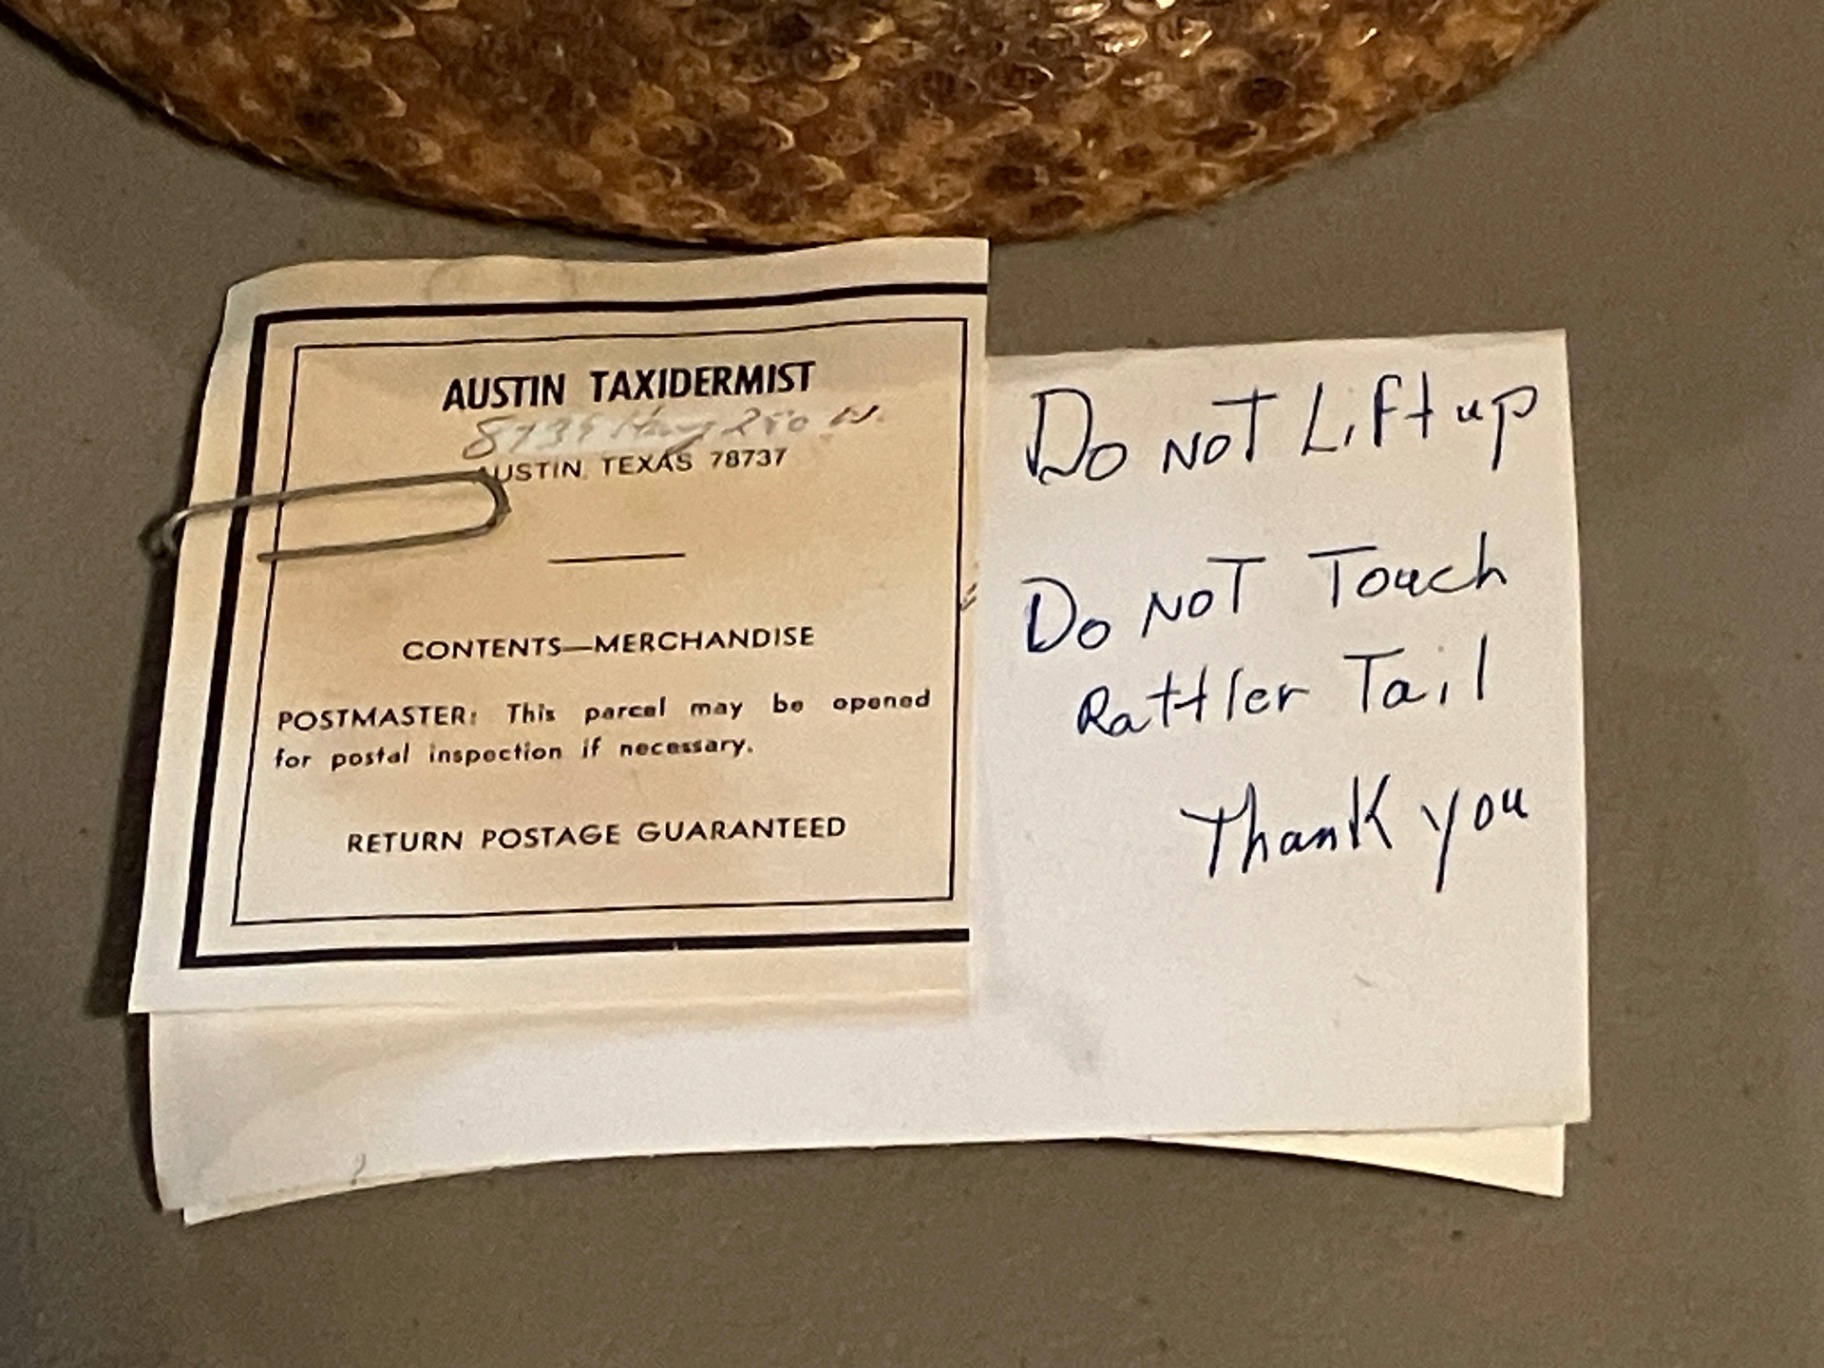 AUSTIN TAXIDERMIST
AUSTIN, TEXAS 78737
CONTENTS—MERCHANDISE
POSTMASTER: This parcel may be opened
for postal inspection if necessary.
RETURN POSTAGE GUARANTEED
Do NOT Lift up
Do NOT Touch
Rattler Tail
Thank you